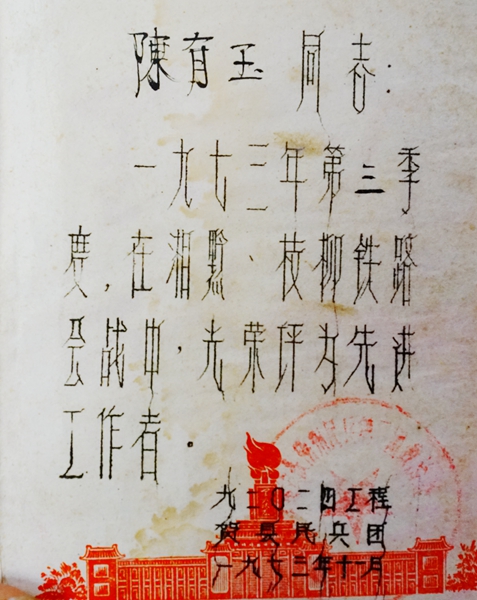 陳有玉 同志:
一九七三年第三季
度,在湘黔、枝柳铁路
会战中,光荣评为先进
工作者.
九二〇二四工程
贺县民兵团
一九七三年十一月